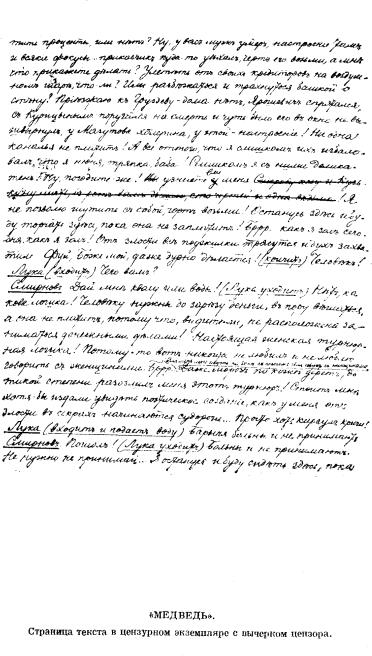 тить проценты, или нѣтъ? Ну, у васъ мужъ умеръ, настроенiе тамъ
и всякiе фокусы... прикащикъ куда-то уѣхалъ, чертъ его возьми, а мнѣ
что прикажете дѣлать? Улетѣть отъ своихъ кредиторовъ на воздуш-
номъ шарѣ, что ли? Или разбѣжаться и трахнуться башкой о
стѣну? Прiѣзжаю къ Груздеву - дома нѣтъ, Ярошевичъ спрятался,
съ Курицынымъ поругался на смерть и чуть было его въ окно не вы-
швырнулъ, у Мазутова холерина, у этой - настроенiе! Ни одна
каналья не платитъ! А все оттого, что я слишкомъ ихъ избало-
валъ, что я нюня, тряпка, баба! Слишкомъ я съ ними делика-
тенъ! Ну, погодите же! Узнаете вы у меня! Я
не позволю шутить съ собой, чортъ возьми! Останусь здѣсь и бу-
ду торчать здѣсь, пока она не заплотитъ! Бррр.. какъ я золъ сего-
дня, какъ я золъ! Отъ злости всѣ поджилки трясутся и духъ захва-
тило. Фуй, Боже мой, даже дурно дѣлается! (кричитъ) Человѣкъ!
Лука (входитъ) Чего вамъ?
Смирновъ Дай мнѣ квасу или воды! (Лука уходитъ) Нѣтъ, ка-
кова логика! Человѣку нужны до зарѣзу деньги, въ пору вѣшаться,
а она не платитъ, потому что, видите ли, не расположена за-
ниматься денежными дѣлами! Настоящая женская, турнюр-
ная логика! Потому-то вотъ никогда не любилъ и не люблю
говорить съ женщинами. Бррр.. Даже морозъ по кожѣ деретъ, до
такой степени разозлилъ меня этотъ турнюръ! Стоитъ мнѣ
хотя бы издали увидѣть поэтическое созданiе, какъ у меня отъ
злости въ икрахъ начинаются судороги... Просто хоть караулъ кричи!
Лука (входитъ и подаетъ воду) Барыня больны и не принимаютъ
Смирновъ Пошелъ! (Лука уходитъ) Больны и не принимаютъ.
Не нужно, не принимай... Я останусь и буду сидѣть здѣсь, пока
«МЕДВЕДЬ».
Страница текста в цензурном экземпляре с вычерком цензора.